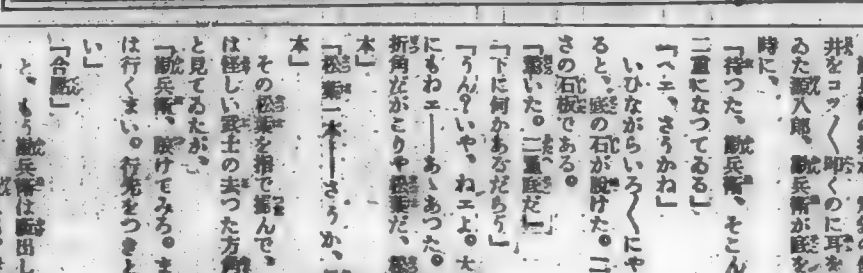 井をコツ〳〵叩くのに耳を
ゐた源八郎、勘兵衛が底を
時に、
『待つた、勘兵衛、そこん
二重になつてゐる』
『ヘエ、さうかね』
いひながらいろ〳〵にや
ると、底の石が脱けた。二
さの石板である。
『驚いた。二重底だ』
『下に何かあるだらう』
『うん？いや、ねエよ。大
にもねエ――あゝあつた。
折角だがこりや松葉だ、松
本』
『松葉一本――さうか、
本』
その松葉を指で摘んで、
は怪しい武士の去つた方角
と見てゐたが、
『勘兵衛、駈けてみろ。ま
は行くまい。行先をつきと
い』
『合點』
と、もう勘兵衛は駈出し